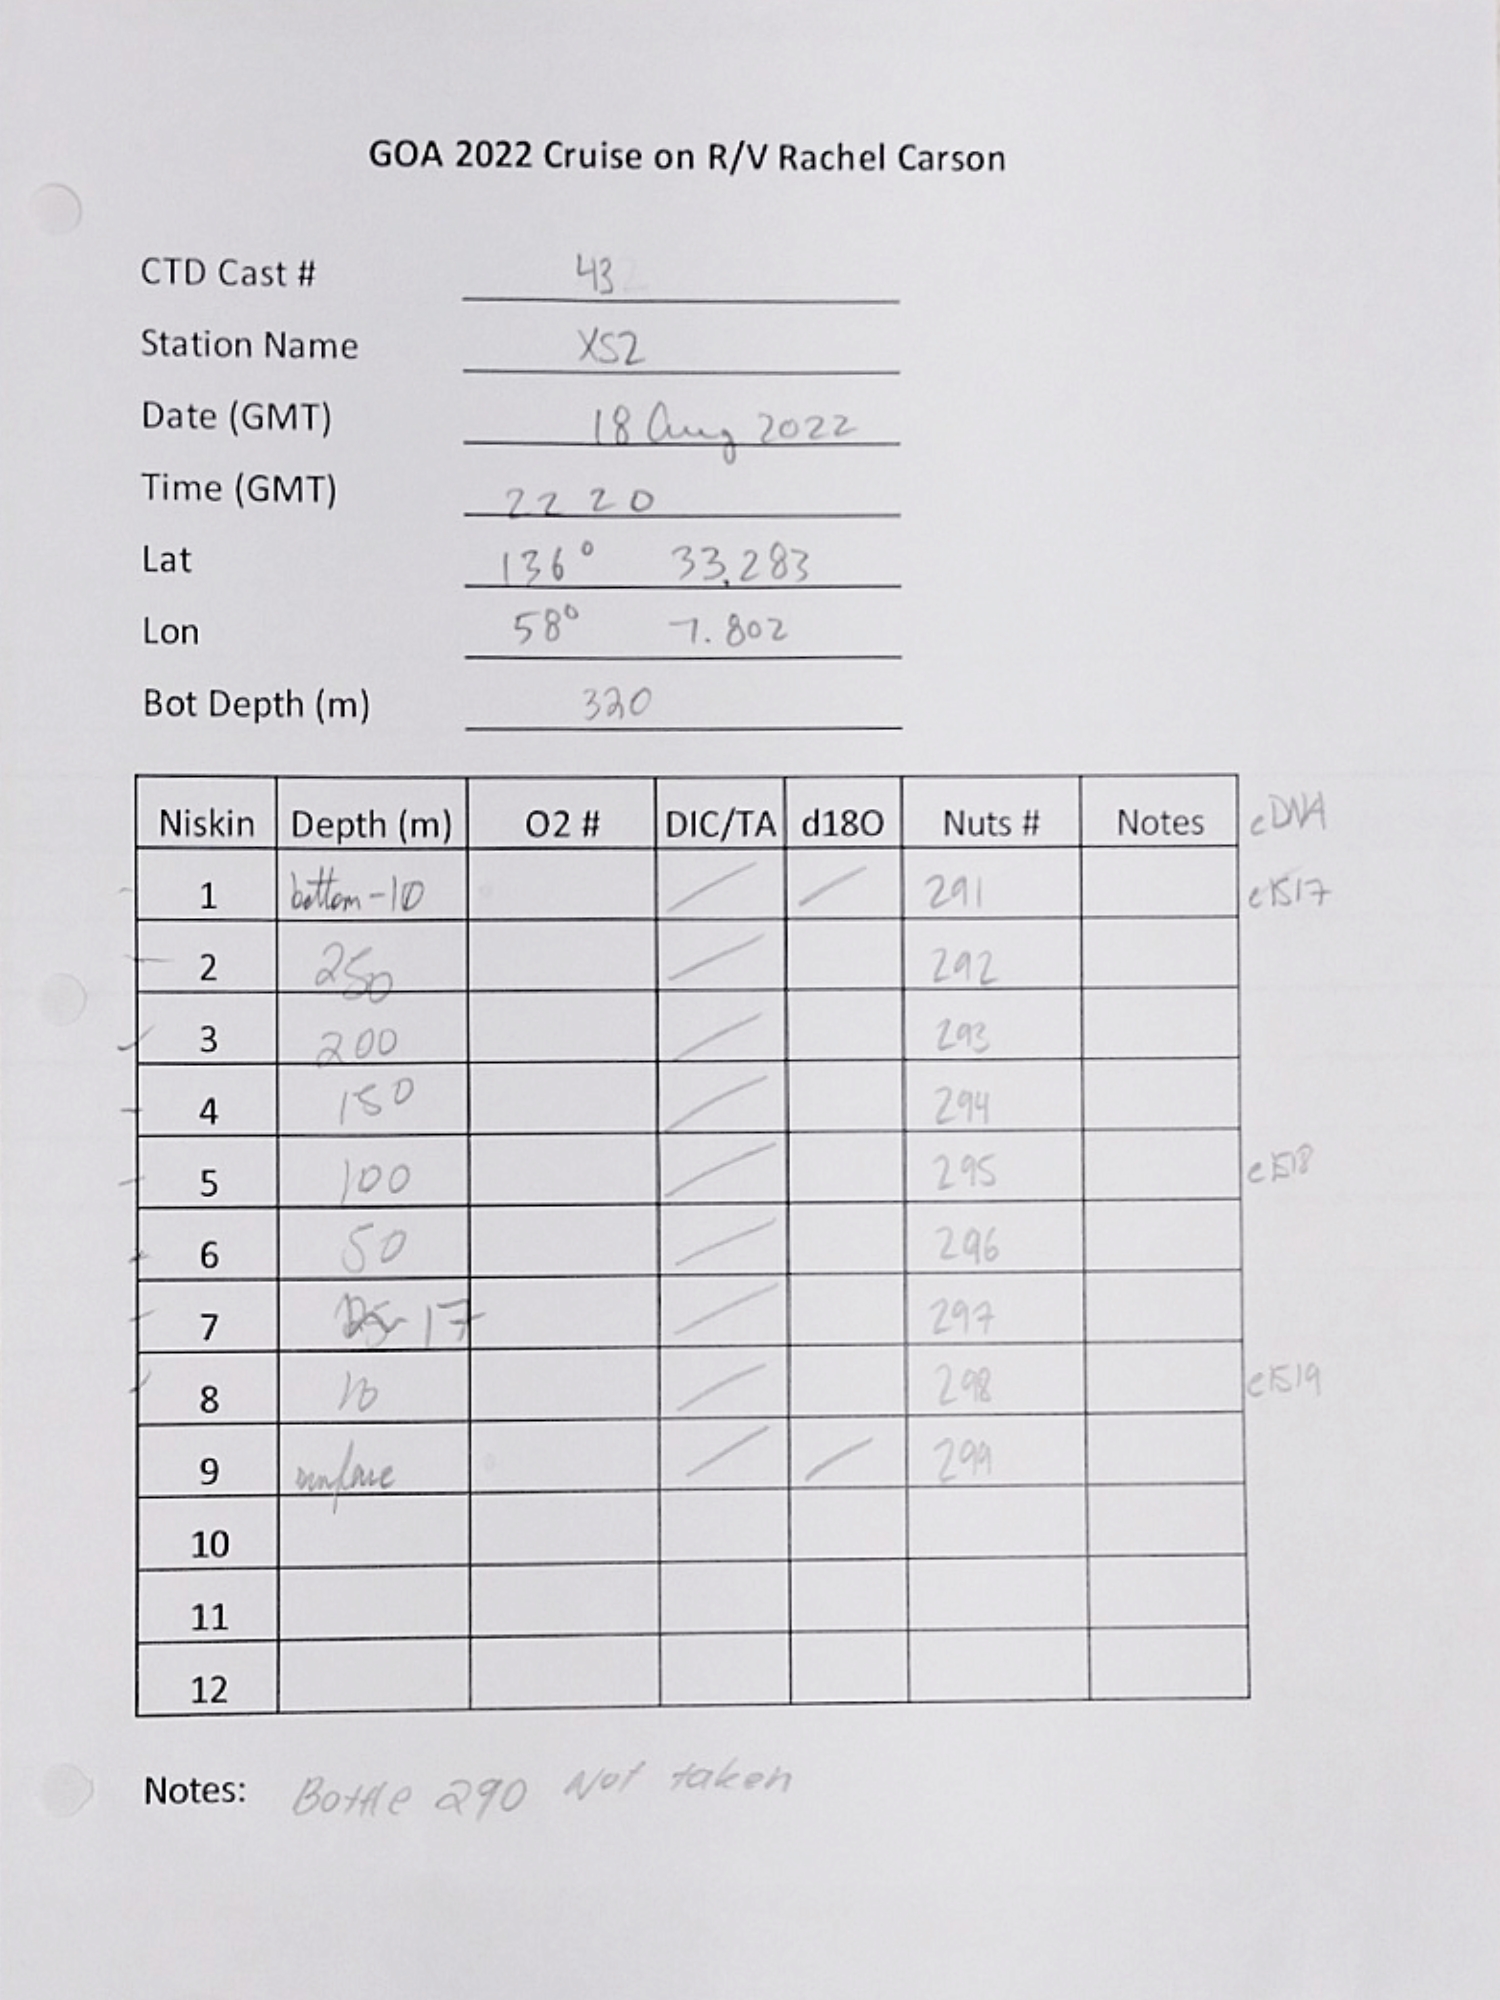 GOA 2022 Cruise on R/V Rachel Carson
CTD Cast # 43
Station Name XS2
Date (GMT) 18 Aug 2022
Time (GMT) 22 20
Lat 136° 33.283
Lon 58° 7.802
Bot Depth (m) 320
Niskin Depth (m) O2 # DIC/TA d18O Nuts # Notes eDNA
1 bottom-10 / / 291 e1517
2 250 / 292
3 200 / 293
4 150 / 294
5 100 / 295 e1518
6 50 / 296
7 17 / 297
8 10 / 298 e1519
9 surface / / 299
10
11
12
Notes: Bottle 290 Not taken